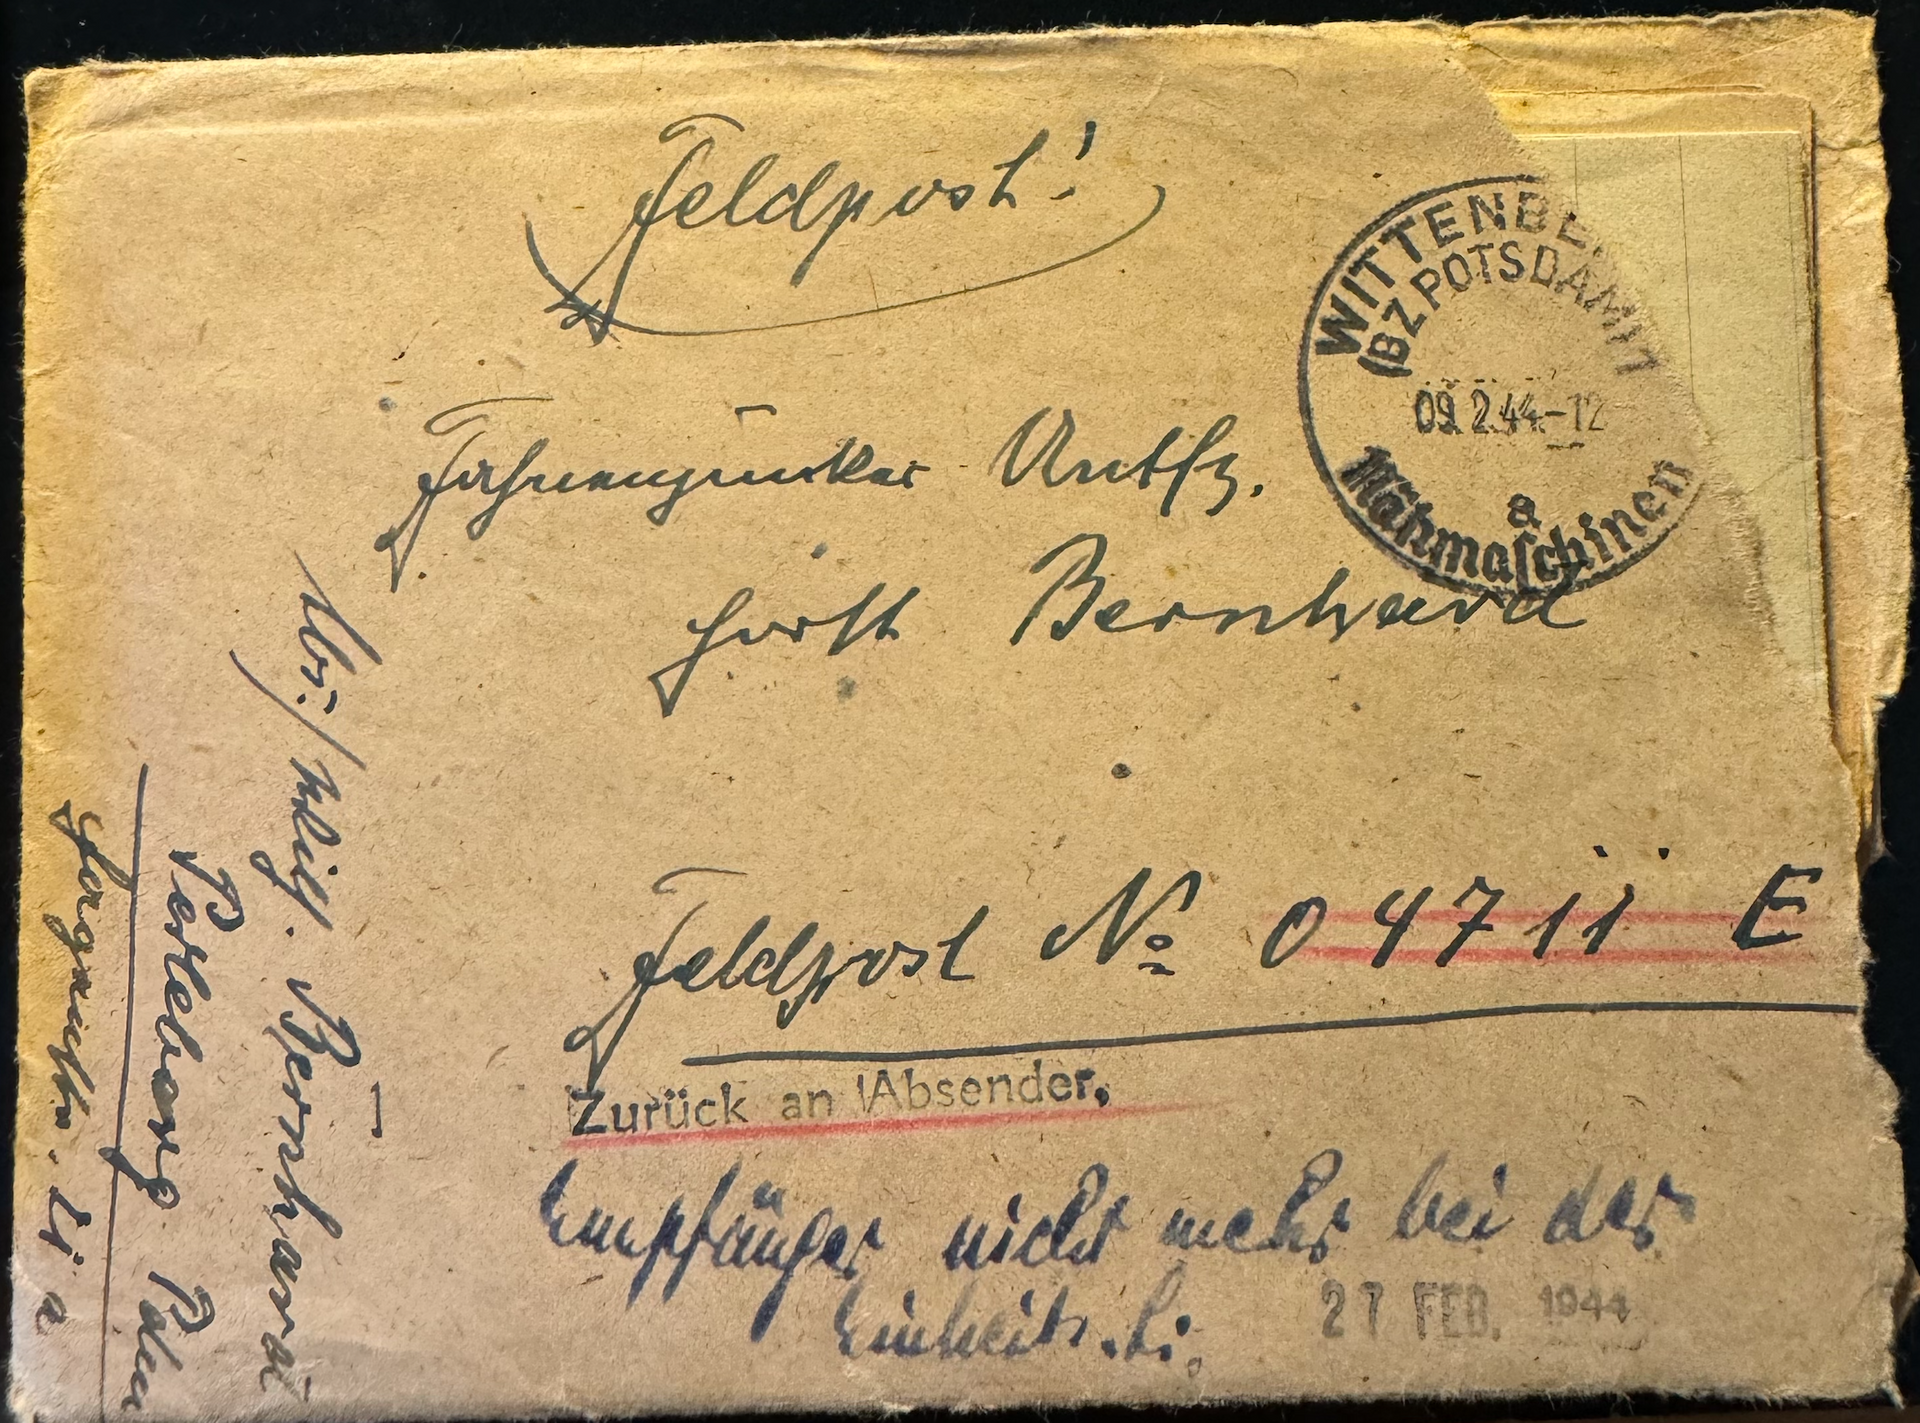 Feldpost!
WITTENBE
(BZ POTSDAM) 1
09.2.44-12
a
Nähmaſchinen
Fahnenjunker Untffz.
Horst Bernhard
Feldpost No 04711 E
Zurück an Absender.
Empfänger nicht mehr bei der
Einheit.
27 FEB. 1944
Bernhard
Perleberg